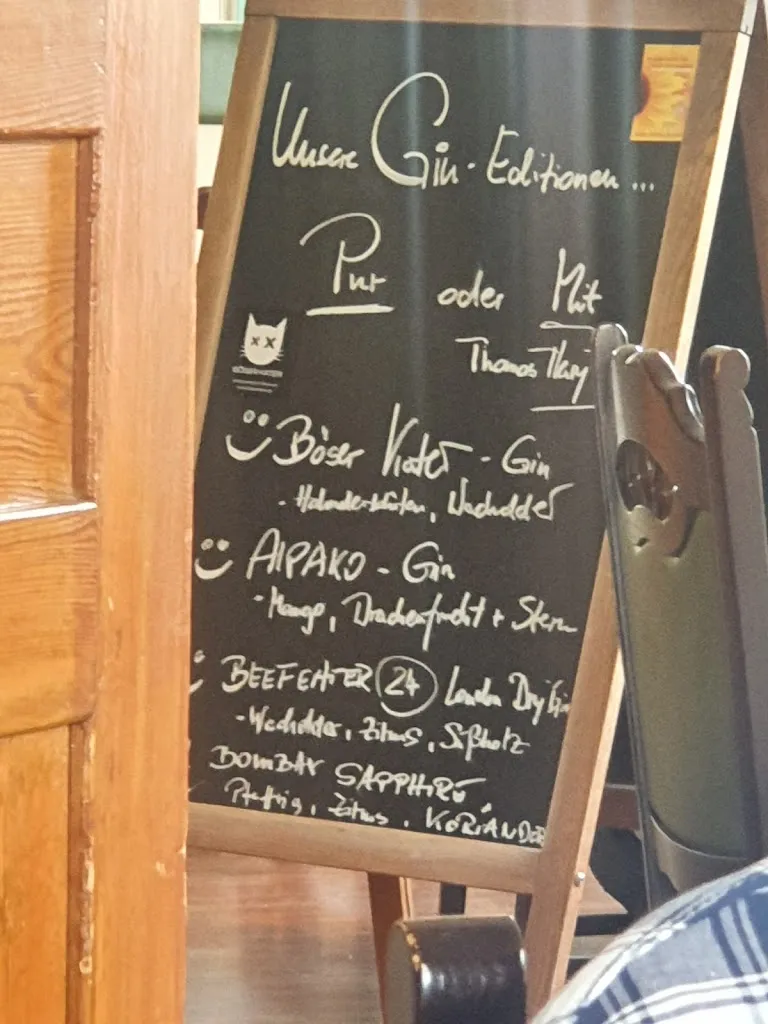 Unsere Gin-Editionen ...
Pur oder Mit
Thomas
Böser Kater - Gin
- Holunderblüten, Wacholder
AlPAKO - Gin
- Mango, Drachenfrucht + Stern
BEEFEATER 24 London Dry Gin
- Wacholder, Zitrus, Süßholz
BOMBAY SAPPHIRE
Pfeffrig, Zitrus, KORIANDER